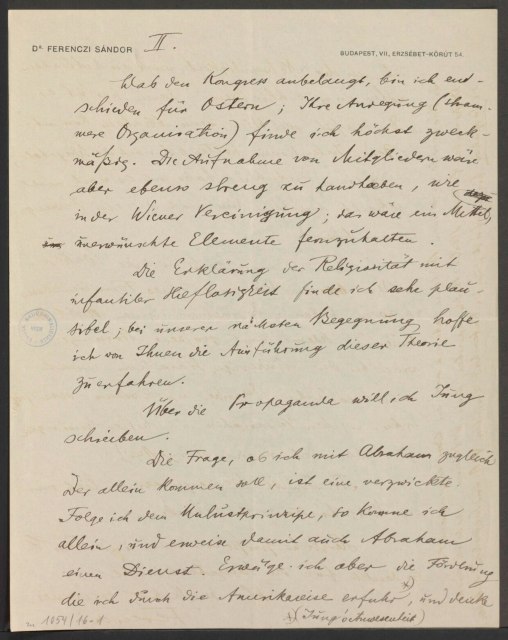 Dr. FERENCZI SÁNDOR
II.
BUDAPEST, VII., ERZSÉBET-KÖRÚT 54.
Was den Kongress anbelangt, bin ich ent-
schieden für Ostern; Ihre Anregung (stram-
mere Organisation) finde ich höchst zweck-
mäßig. Die Aufnahme von Mitgliedern wäre
aber ebenso streng zu handhaben, wie
in der Wiener Vereinigung; das wäre ein Mittel,
unerwünschte Elemente fernzuhalten.
Die Erklärung der Religiosität mit
infantiler Hilflosigkeit finde ich sehr plau-
sibel; bei unserer nächsten Begegnung hoffe
ich von Ihnen die Ausführung dieser Theorie
zu erfahren.
Über die Propaganda will ich Jung
schreiben.
Die Frage, ob ich mit Abraham zugleich
oder allein kommen soll, ist eine verzwickte.
Folge ich dem Unlustprinzipe, so komme ich
allein, und erweise damit auch Abraham
einen Dienst. Erwäge ich aber die Förderung
die ich durch die Amerikareise erfuhr x), und denke
x) (Jung's Anwesenheit)
1054/16-1